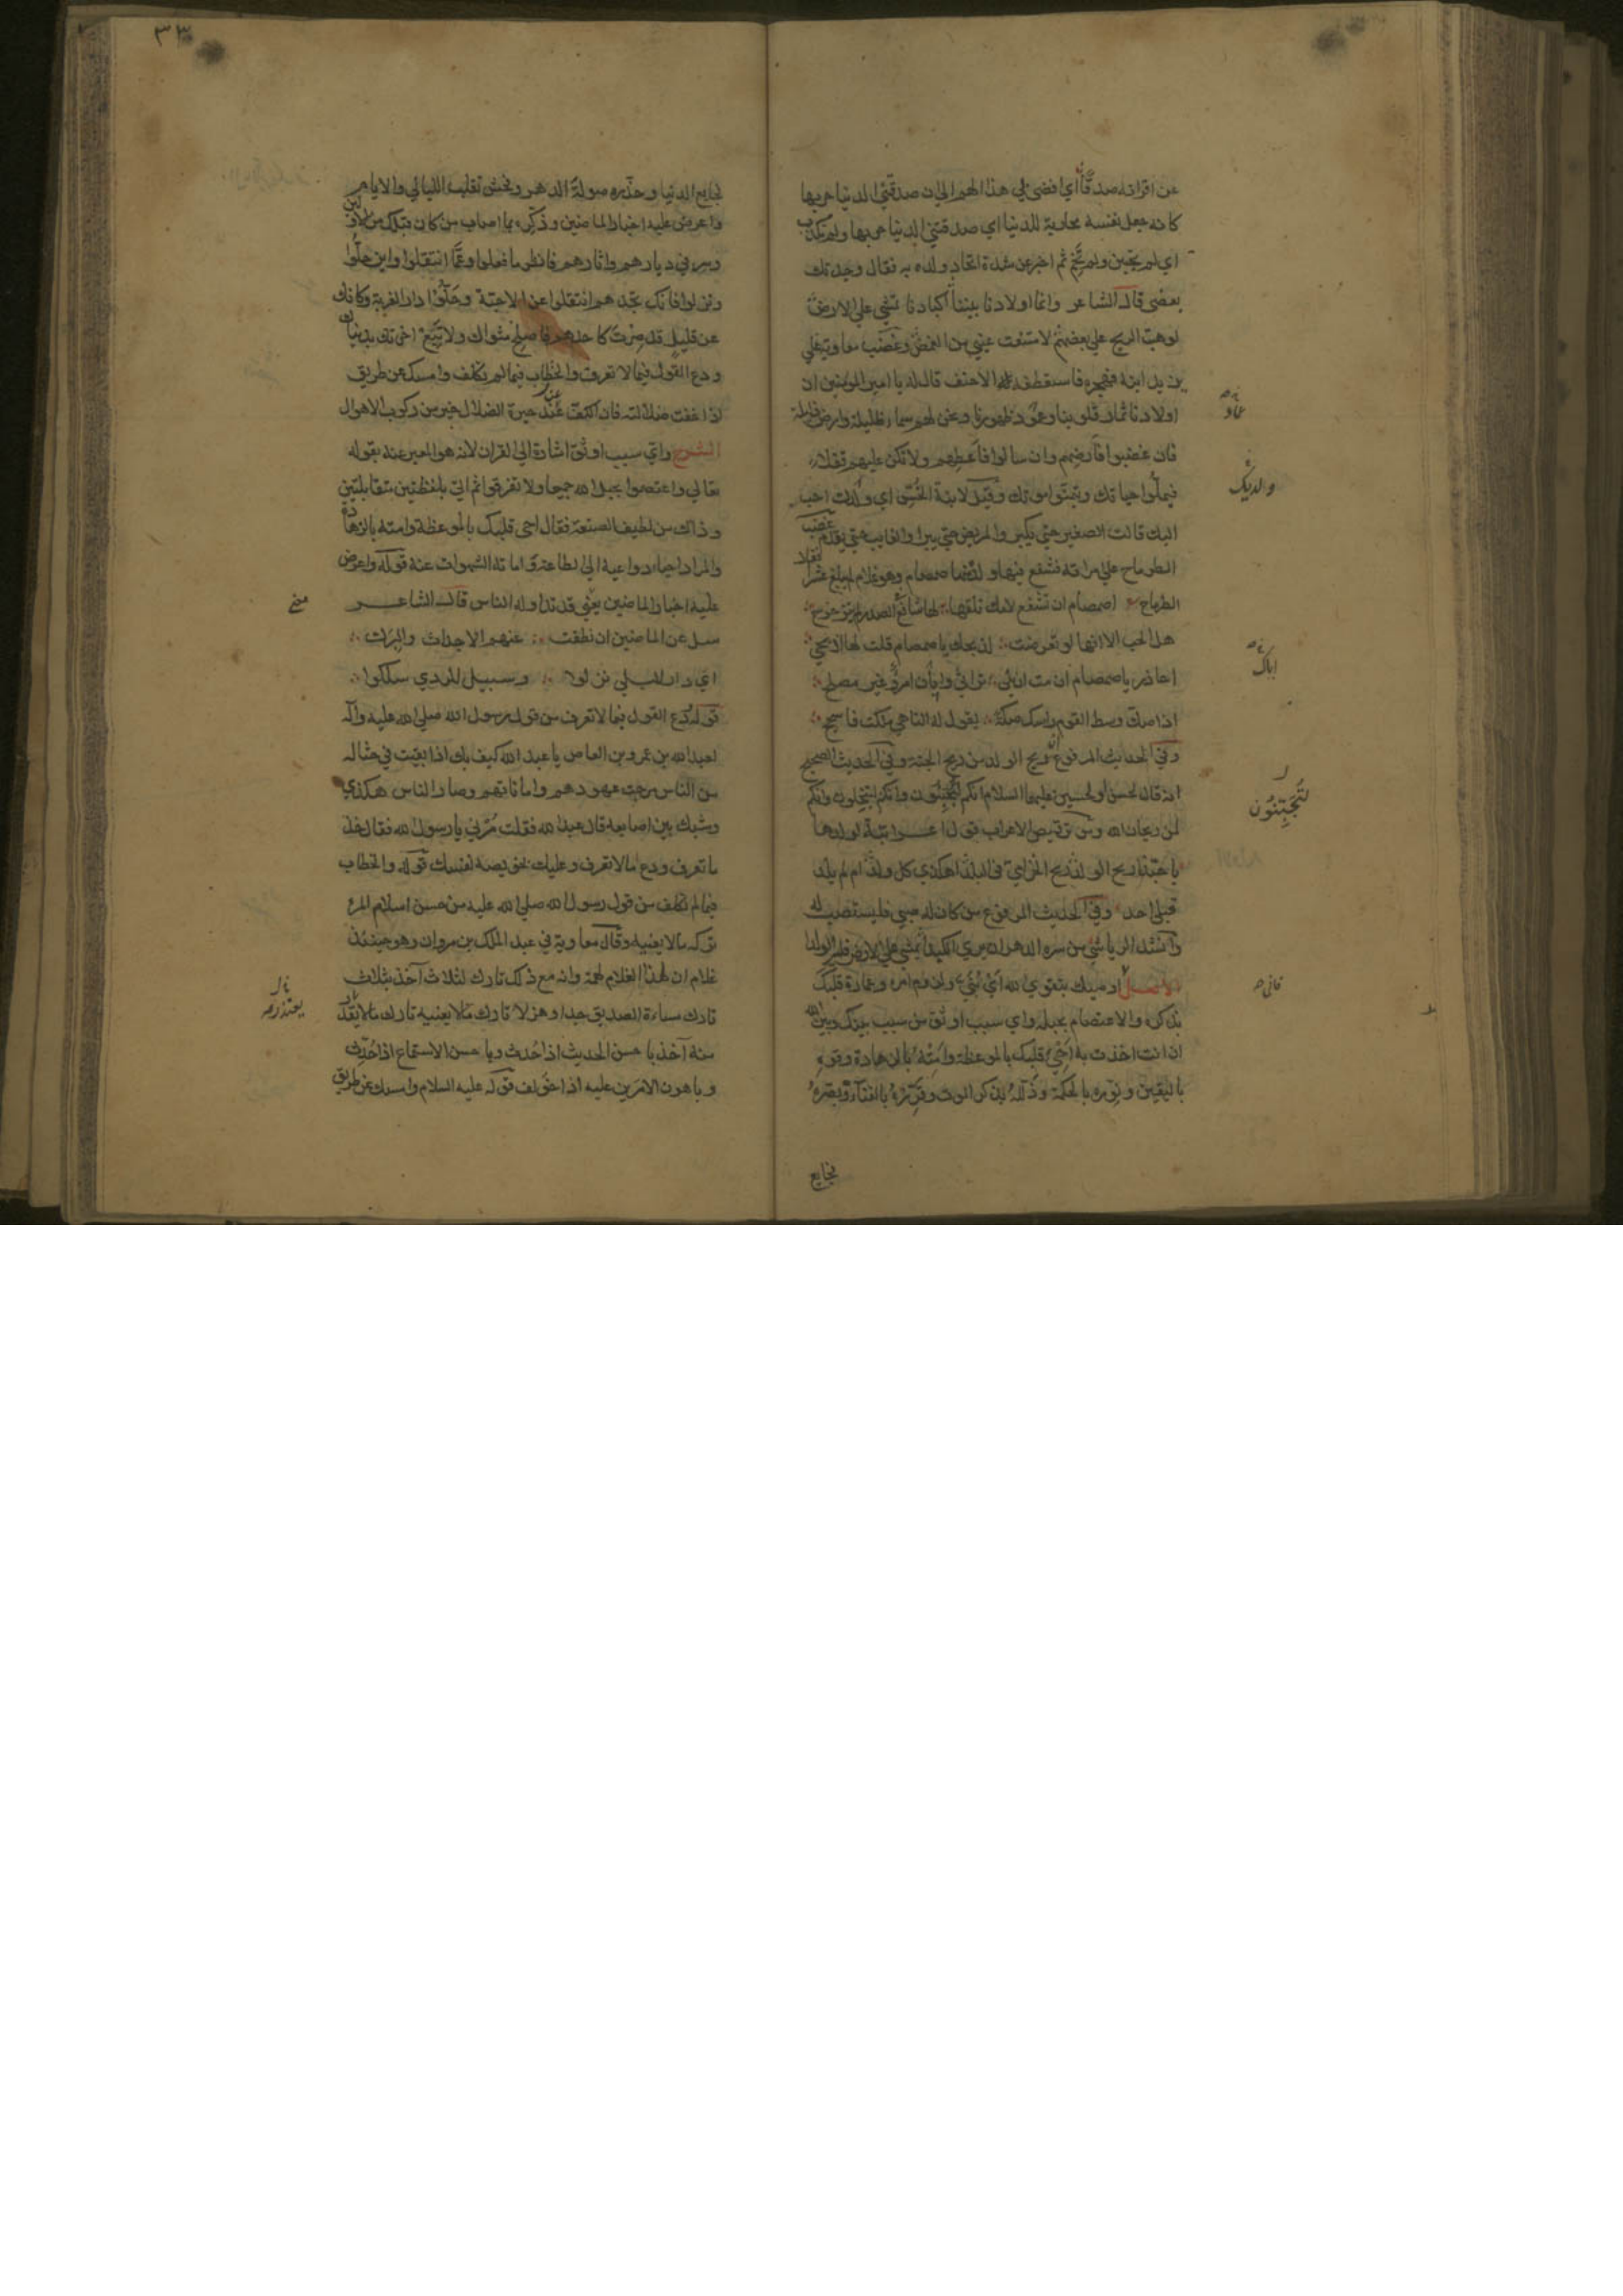 عن اقرانه صدقا اي افضى بي هذا الهم الي ان صدقتني الدنيا حربها
كانه جعل نفسه محاربة للدنيا اي صدقتني الدنيا حربها ولم تكذب
اي لم يجبن ولم ثم اخبر عن شدة اتحاد ولده به فقال وجدتك
بعضي قال الشاعر وانما اولادنا بيننا اكبادنا تمشي على الارض
لو هبت الريح على بعضهم لامتنعت عيني من الغمض وغضب معاوية على
يزيد ابنه فهجره فاستعطفه له الاحنف قال له يا امير المؤمنين ان
اولادنا ثمار قلوبنا وعماد ظهورنا ونحن لهم سماء ظليلة وارض ذليلة
فان غضبوا فارضهم وان سالوا فاعطهم ولا تكن عليهم قفلا
فيملوا حياتك ويتمنوا موتك وقيل لابنة الخس اي ولدك احب
اليك قالت الصغير حتى يكبر والمريض حتى يبرا والغايب حتى يقدم غضب
الطرماح على امراته فشفع فيها ولده منها صمصام وهو غلام لم يبلغ عشرا فقال
الطرماح اصمصام ان تشفع لامك تلقها لها شافع في الصدر لم يتزحزح
هل الحب الا انها لو تعرضت لذبحك يا صمصام قلت لها اذبحي
احاذر يا صمصام ان مت ان يلي تراثي واياك امرؤ غير مصلح
اذا صك وسط القوم راسك صكة يقول له الناهي ملكت فاسجح
وفي الحديث المرفوع ان ريح الولد من ريح الجنة وفي الحديث الصحيح
انه قال لحسن او لحسين عليهما السلام انكم لتجبنون وانكم لتبخلون وانكم
لمن ريحان الله ومن ترقيص الاعراب قول اعرابية لولدها
يا حبذا ريح الولد ريح الخزامي في البلد اهكذي كل ولد ام لم يلد
قبلي احد وفي الحديث المرفوع من كان له صبي فليستصب له
وانشد الرياشي من سره الدهر ان يري الكبد يمشي على الارض فلير الولدا
الاصل اوصيك بتقوي الله اي بني ولزوم امره وعمارة قلبك
بذكره والاعتصام بحبله واي سبب اوثق من سبب بينك وبين الله
ان انت اخذت به احي قلبك بالموعظة وامته بالزهادة وقوه
باليقين ونوره بالحكمة وذلله بذكر الموت وقرره بالفناء وبصره
فجايع
عماد
والديك
اباك
لتجبنون
٣٣
فجايع الدنيا وحذره صولة الدهر وفحش تقلب الليالي والايام
واعرض عليه اخبار الماضين وذكره بما اصاب من كان قبلك من الاولين
وسر في ديارهم واثارهم فانظر ما فعلوا وعما انتقلوا واين حلوا
ونزلوا فانك تجدهم انتقلوا عن الاحبة وحلوا دار الغربة وكانك
عن قليل قد صرت كاحدهم فاصلح مثواك ولا تبع اخرتك بدنياك
ودع القول فيما لا تعرف والخطاب فيما لم تكلف وامسك عن طريق
اذا خفت ضلالته فان الكف عند حيرة الضلال خير من ركوب الاهوال
الشرح واي سبب اوثق اشارة الى القران لانه هو المعبر عنه بقوله
تعالي واعتصموا بحبل الله جميعا ولا تفرقوا ثم اتى بلفظتين متقابلتين
وذاك من لطيف الصنعة فقال احي قلبك بالموعظة وامته بالزهادة
والمراد احياء دواعيه الى الطاعة واماتة الشهوات عنه قوله واعرض
عليه اخبار الماضين يعني قد تداوله الناس قال الشاعر
سل عن الماضين ان نطقت عنهم الاجداث والبرك
اي دار للبلي نزلوا وسبيل للردي سلكوا
قوله دع القول فيما لا تعرف من قول رسول الله صلى الله عليه واله
لعبد الله بن عمرو بن العاص يا عبد الله كيف بك اذا بقيت في حثاله
من الناس مرجت عهودهم واماناتهم وصار الناس هكذي
وشبك بين اصابعه قال عبد الله فقلت مرني يا رسول الله فقال خذ
ما تعرف ودع ما لا تعرف وعليك بخويصة نفسك قوله والخطاب
فيما لم تكلف من قول رسول الله صلى الله عليه من حسن اسلام المرء
تركه ما لا يعنيه وقال معاوية في عبد الملك بن مروان وهو حينئذ
غلام ان لهذا الغلام لهمة وانه مع ذلك تارك لثلاث اخذ بثلاث
تارك مساءة الصديق جدا وهزلا تارك ما لا يعنيه تارك ما لا يعتذر
منه آخذ باحسن الحديث اذا حدث وباحسن الاستماع اذا حدث
وباهون الامرين عليه اذا خولف قوله عليه السلام وامسك عن طريق